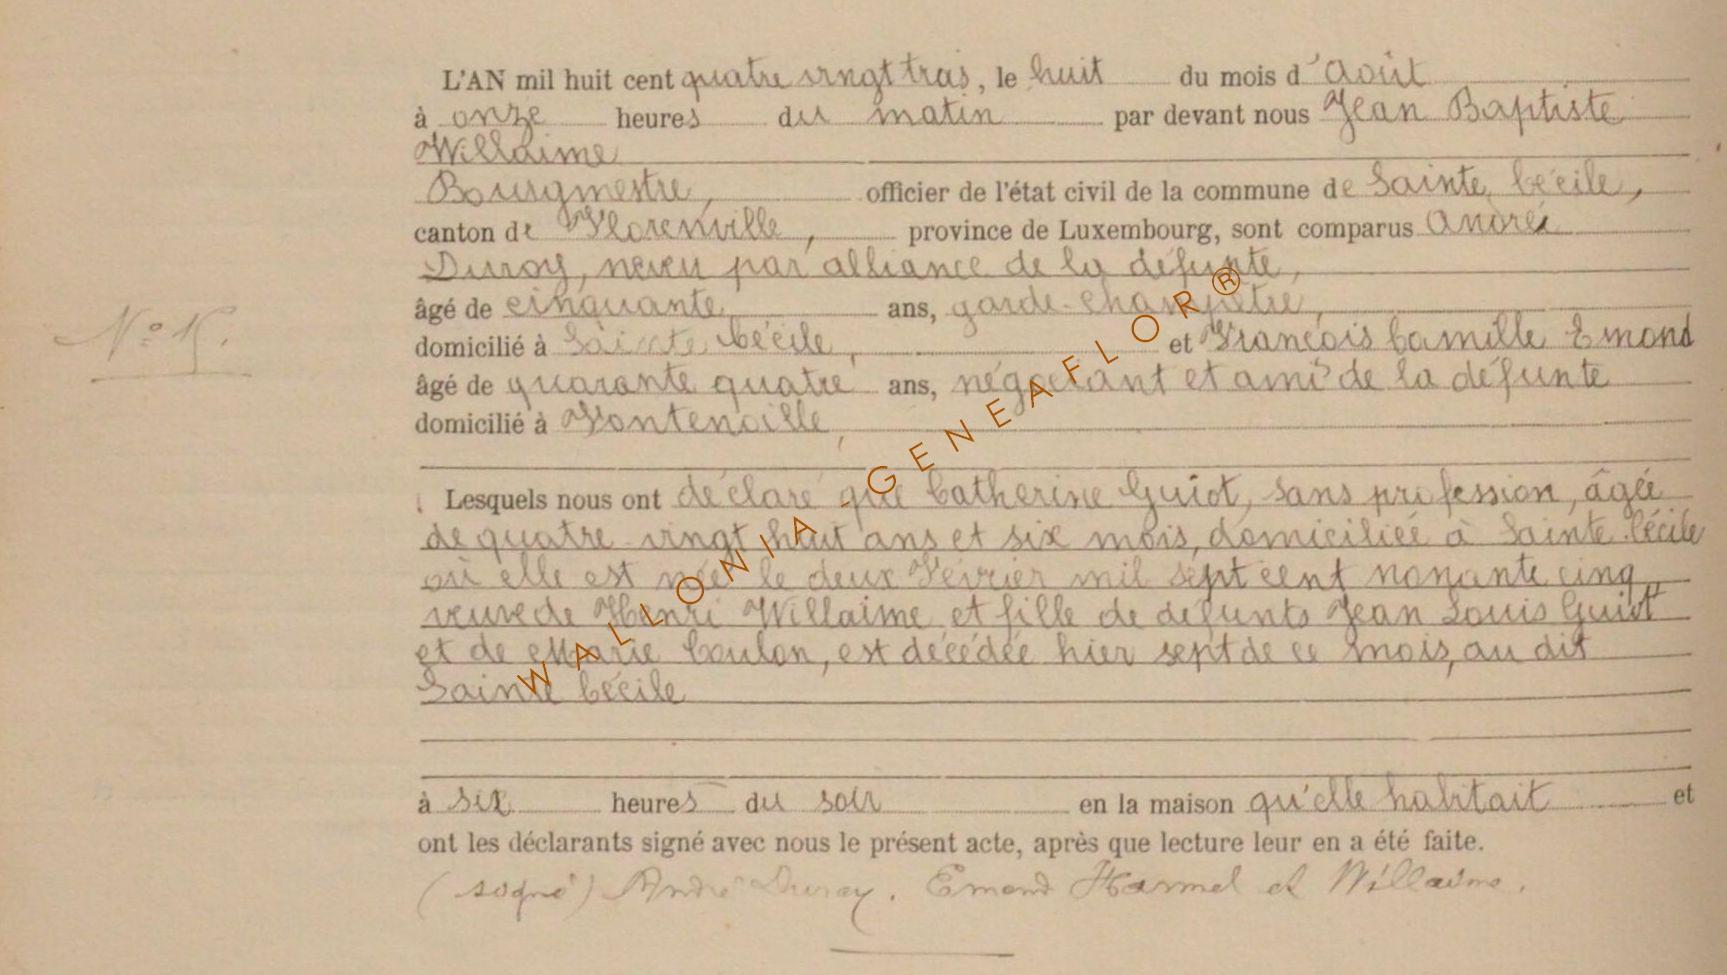 L'AN mil huit cent quatre vingt trois, le huit du mois d'Août
à onze heures du matin par devant nous Jean Baptiste
Willaime
Bourgmestre, officier de l'état civil de la commune de Sainte Cécile,
canton de Florenville, province de Luxembourg, sont comparus André
Duroy, neveu par alliance de la défunte,
âgé de cinquante ans, garde-champêtre,
domicilié à Sainte Cécile, et François Camille Emond
N° 15.
âgé de quarante quatre ans, négociant et ami de la défunte
domicilié à Fontenoille,
Lesquels nous ont déclaré que Catherine Guiot, sans profession, âgée
de quatre-vingt huit ans et six mois, domiciliée à Sainte Cécile
où elle est née le deux Février mil sept cent nonante cinq,
veuve de Henri Willaime et fille de défunts Jean Louis Guiot
et de Marie Coulon, est décédée hier sept de ce mois, au dit
Sainte Cécile
à six heures du soir en la maison qu'elle habitait et
ont les déclarants signé avec nous le présent acte, après que lecture leur en a été faite.
(signé) André Duroy. Emond Harmel et Willaime.
WALLONIA - GENEAFLOR®